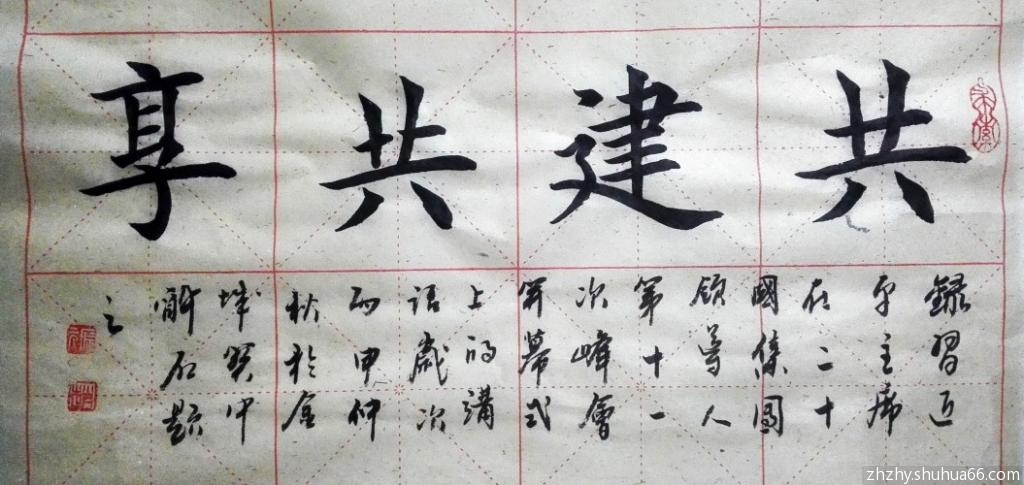 共建共享
錄習近
平主席
在二十
國集團
領導人
第十一
次峰會
開幕式
上的講
話歲次
丙申仲
秋於金
城
石題
之
zhzhy.shuhua66.com